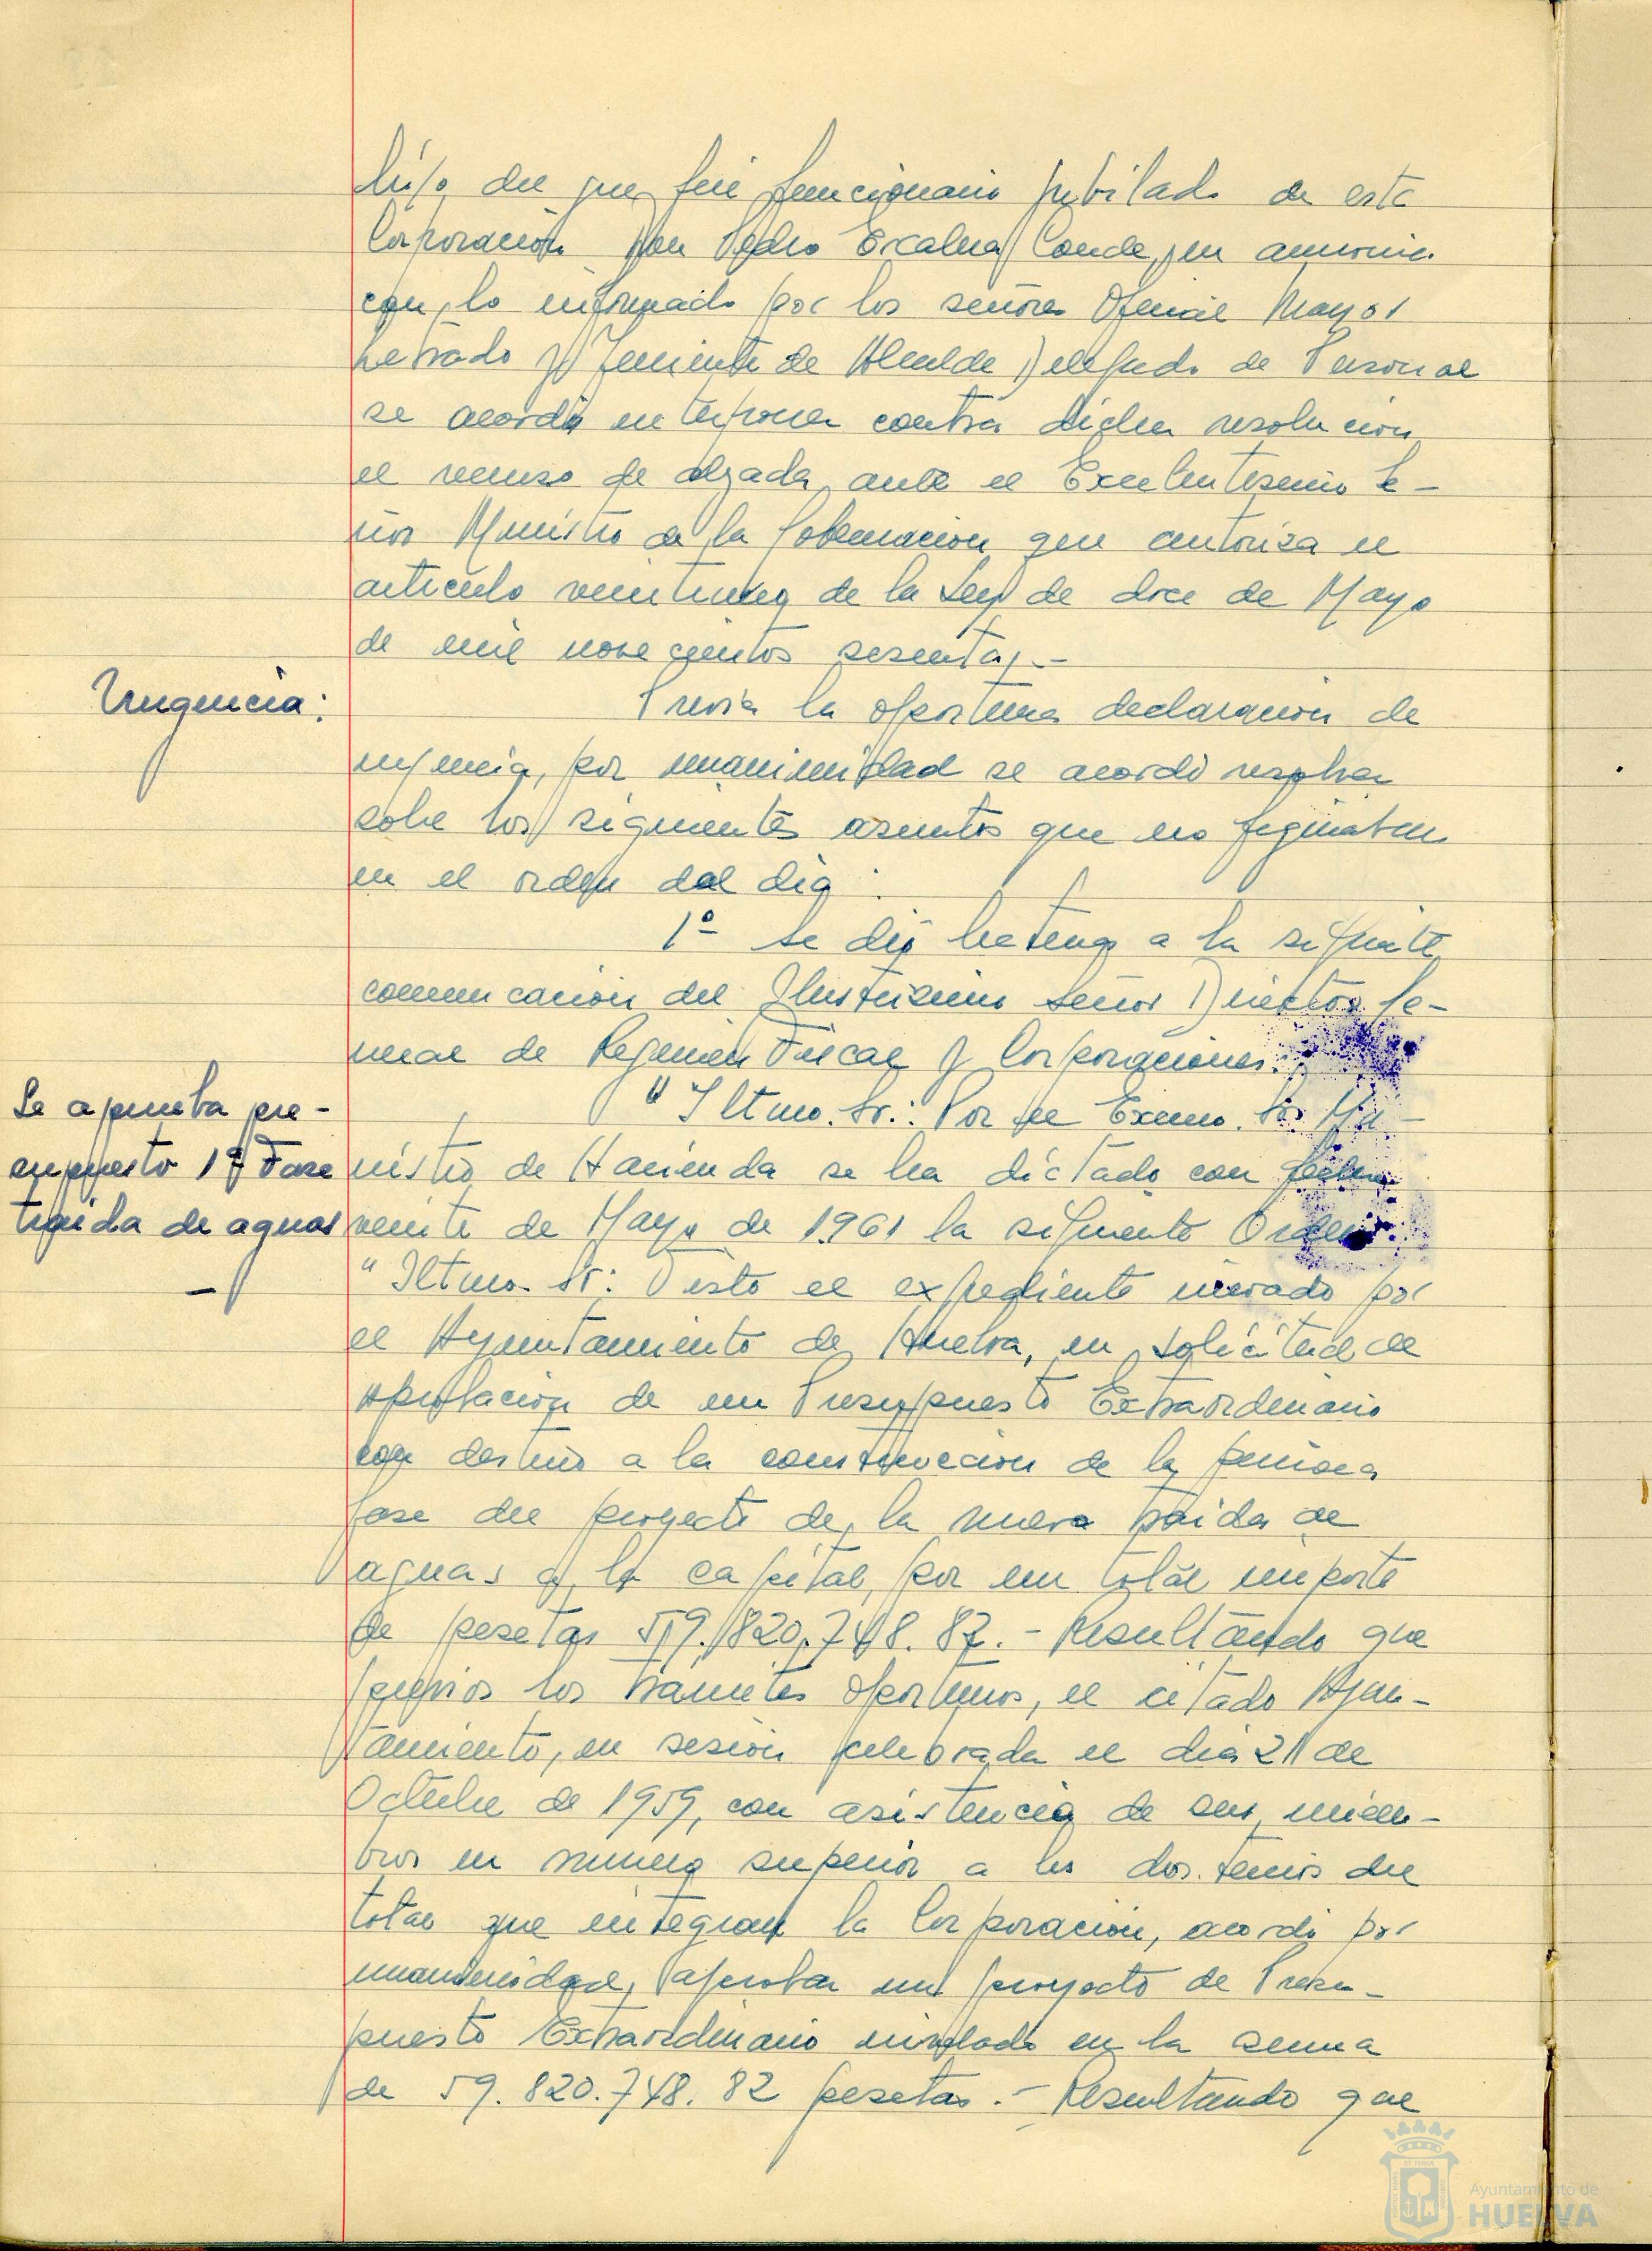 hijo del que fué funcionario jubilado de esta
Corporación Don Pedro Escalera Conde, en armonía
con lo informado por los señores Oficial Mayor
Letrado y Teniente de Alcalde Delegado de Personal
se acordó interponer contra dicha resolución
el recurso de alzada ante el Excelentísimo Se-
ñor Ministro de la Gobernación que autoriza el
artículo de la Ley de doce de Mayo
de mil novecientos sesenta.-
Urgencia:
Previa la oportuna declaración de
urgencia, por unanimidad se acordó resolver
sobre los siguientes asuntos que no figuraban
en el orden del día:
1º Se dió lectura a la siguiente
comunicación del Ilustrísimo Señor Director Ge-
neral de Régimen Fiscal y Corporaciones:
Se aprueba pre-
supuesto 1ª Fase
traida de aguas
"Iltmo. Sr.: Por el Excmo. Sr. Mi-
nistro de Hacienda se ha dictado con fecha
veinte de Mayo de 1961 la siguiente Orden:
"Iltmo. Sr: Visto el expediente incoado por
el Ayuntamiento de Huelva, en solicitud de
aprobación de un Presupuesto Extraordinario
con destino a la construcción de la primera
fase del proyecto de la nueva traida de
aguas a la capital, por un total importe
de pesetas 59.820.748.82.- Resultando que
previos los trámites oportunos, el citado Ayun-
tamiento, en sesión celebrada el dia 21 de
Octubre de 1959, con asistencia de sus miem-
bros en número superior a los dos tercios del
total que integran la Corporación, acordó por
unanimidad, aprobar un proyecto de Presu-
puesto Extraordinario nivelado en la suma
de 59.820.748.82 pesetas.- Resultando que
Ayuntamiento de
HUELVA